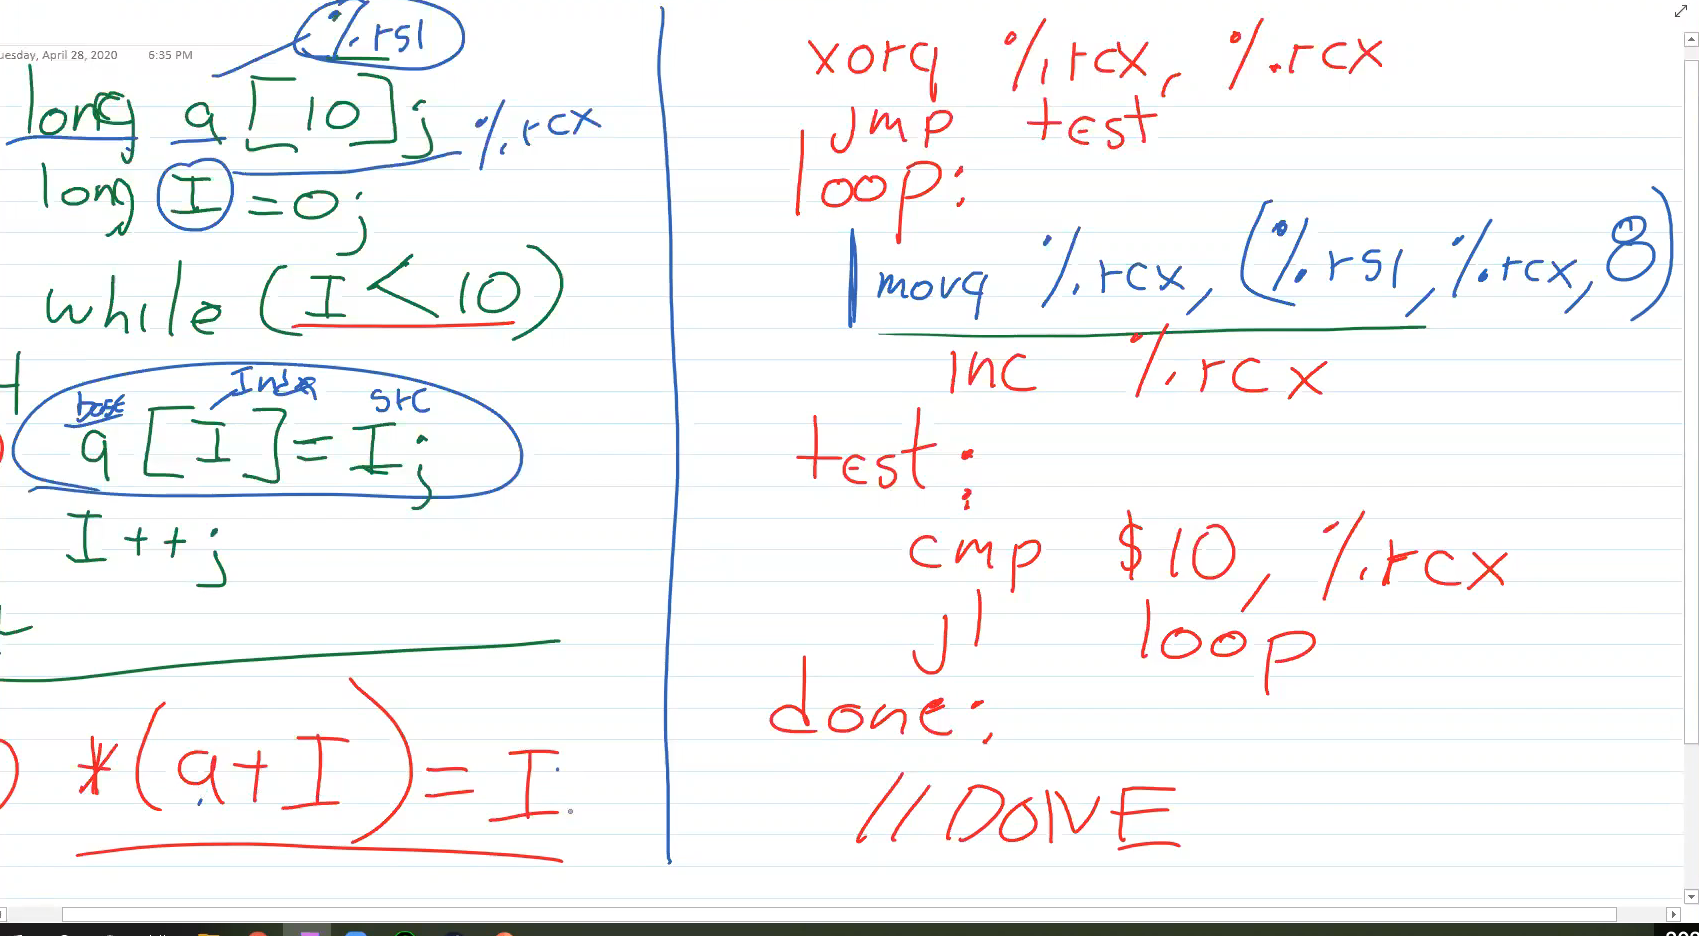 %rsi
Tuesday, April 28, 2020 6:35 PM
long a[10]; %rcx
long I = 0;
while (I < 10)
base Index src
a[I] = I;
I++;
*(a+I) = I
xorq %rcx, %rcx
jmp test
loop:
movq %rcx, (%rsi, %rcx, 8)
inc %rcx
test:
cmp $10, %rcx
jl loop
done:
//DONE